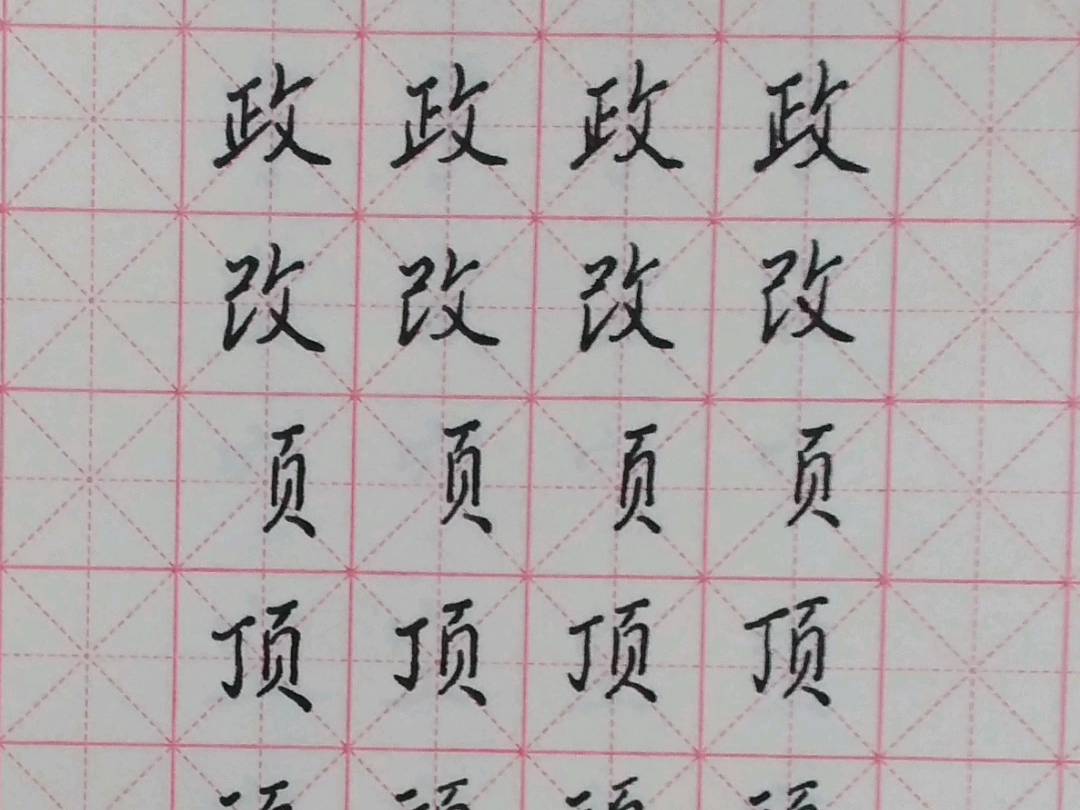 政政政政
改改改改
页页页页
顶顶顶顶